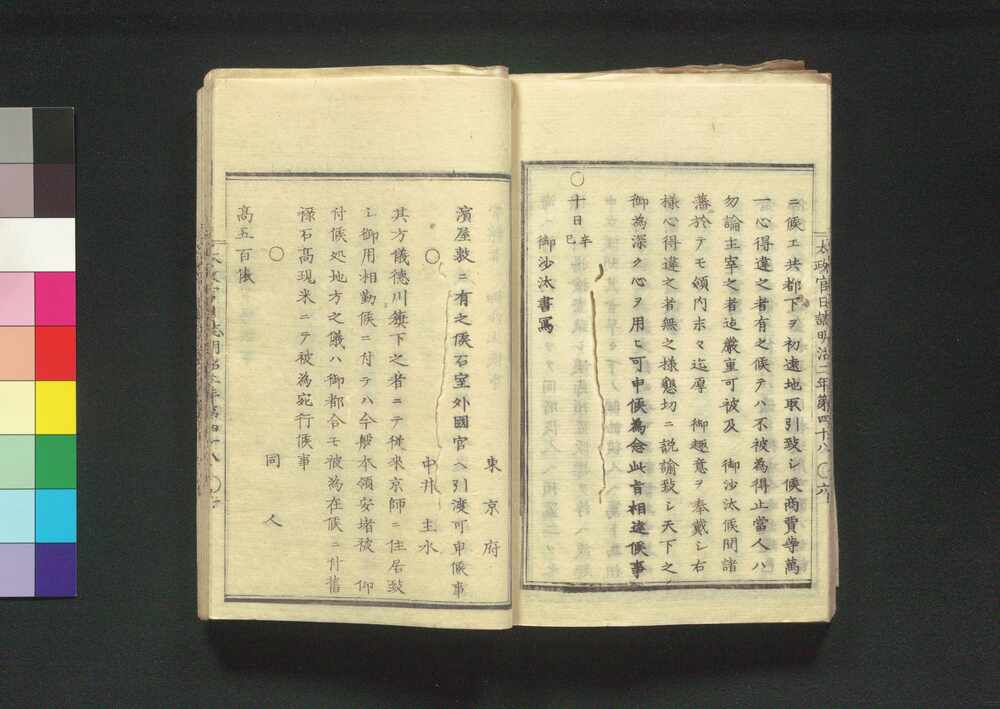 太政官日誌明治二年第四十八 〇六
ニ候エ共都下ヲ初遠地取引致シ候商賈等萬
一心得違之者有之候テハ不被為得止當人ハ
勿論主宰之者迄嚴重可被及 御沙汰候間諸
藩於テモ領内末々迄厚 御趣意ヲ奉戴シ右
様心得違之者無之様懇切ニ説諭致シ天下之
御為深ク心ヲ用ヒ可申候為念此旨相達候事
〇十日辛巳
御沙汰書寫
東京府
濱屋敷ニ有之候石室外國官ヘ引渡可申候事
〇
中井主水
其方儀德川籏下之者ニテ従来京師ニ住居致
シ御用相勤候ニ付テハ今般本領安堵被 仰
付候処地方之儀ハ御都合モ被為在候ニ付舊
禄石髙現米ニテ被為宛行候事
〇
同人
髙五百俵